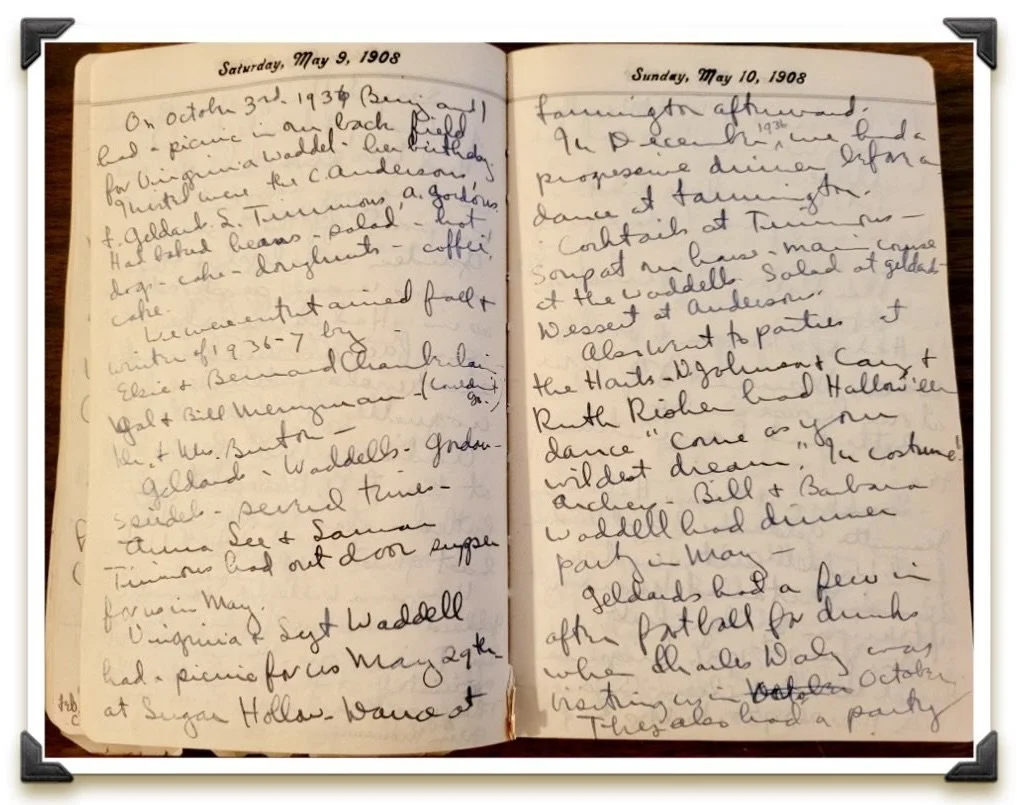 Saturday, May 9, 1908
On October 3rd 1936 (Benj and I
had a picnic in our back field
for Virginia Waddel - her birthday.
Guests were the C. Andersons
F. Geldards. L. Timmons, A. Gordons.
Had baked beans - salad - hot
dogs - cake - doughnuts - coffee,
cake.
We were entertained fall &
winter of 1936-7 by -
Elsie & Bernard Chamberlain -
& Bill Merryman - (couldn't
go.)
Mr. & Mrs. Burton -
Geldards - Waddells - Gordon -
several times -
Anna Lee & Laman
Timmons had out door supper
for us in May.
Virginia & Sgt Waddell
had a picnic for us May 29th -
at Sugar Hollow - Dance at
Feb
Sunday, May 10, 1908
Farmington afterward.
In December, 1936 we had a
progressive dinner before a
dance at Farmington.
Cocktails at Timmons -
Soup at our house - main course
at the Waddells. Salad at Geldards -
Dessert at Andersons.
Also went to parties at
the Harts - D Johnson & Cary &
Ruth Risher had Hallow'een
dance "Come as your
wildest dream," In costume!
Archer - Bill & Barbara
Waddell had dinner
party in May -
Geldards had a few in
after football for drinks
when Charles Daly was
visiting us in October
They also had a party